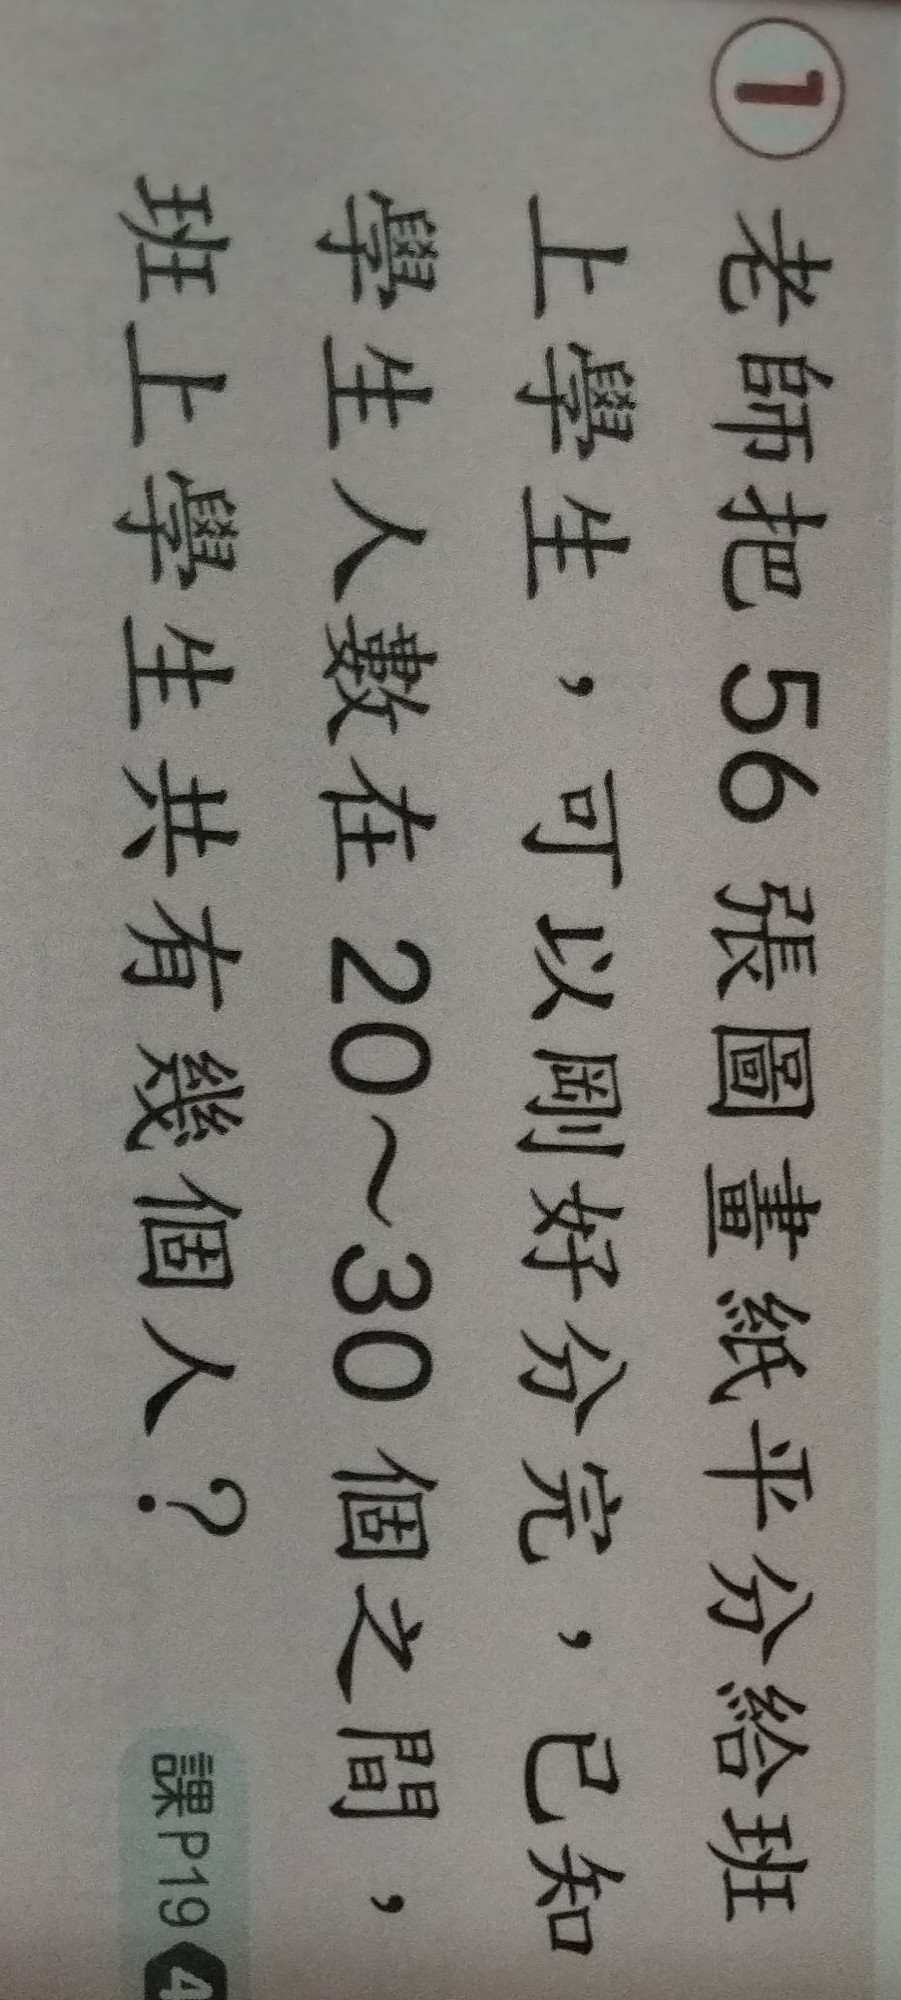 1 老師把 56 張圖畫紙平分給班
上學生，可以剛好分完，已知
學生人數在 20～30 個之間，
班上學生共有幾個人？
課 P19 4